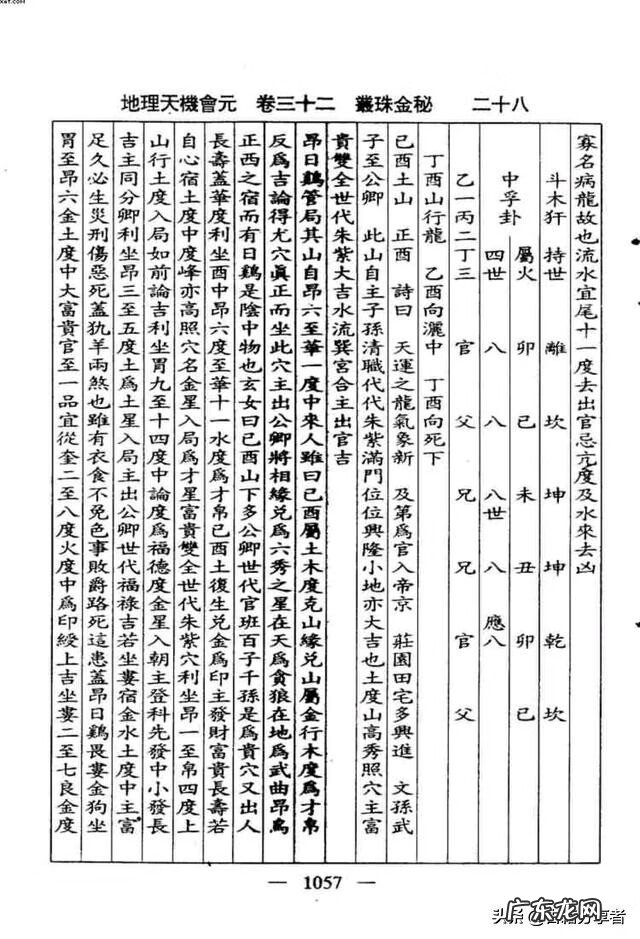 xet.com
地理天機會元 卷三十二 叢珠金秘 二十八
寡名病龍故也流水宜尾十一度去出官忌亢度及水來去凶
斗木犴 持世 離 坎 坤 坤 乾 坎
屬火 卯 巳 未 丑 卯 巳
中孚卦 四世 八 八 八世 八 應八
乙一丙二丁三 官 父 兄 兄 官 父
丁酉山行龍 乙酉向灑中 丁酉向死下
己酉土山 正酉 詩曰 天運之龍氣象新 及第為官入帝京 莊園田宅多興進 文孫武
子至公卿 此山自主子孫清職代代朱紫滿門位位興隆小地亦大吉也土度山高秀照穴主富
貴雙全世代朱紫大吉水流巽宮合主出官吉
昂日鷄管局其山自昂六至華一度中來人雖曰已酉屬土木度克山緣兌山屬金行木度為才帛
反為吉論得尤穴眞正而坐此穴主出公卿將相緣兌為六秀之星在天為貪狼在地為武曲昂為
正西之宿而有日鷄是陰中物也玄女曰已酉山下多公卿世代官班百子千孫是為貴穴又出人
長壽蓋華度利坐酉中昂六度至華十一水度為才帛已酉土復生兌金為印主發財富貴長壽若
自心宿土度中度峰亦高照穴名金星入局為才星富貴雙全世代朱紫穴利坐昂一至帛四度上
山行土度入局如前論吉利坐胃九至十四度中論度為福德度金星入朝主登科先發中小發長
吉主同分卿利坐昂三至五度土為土星入局主出公卿世代福祿吉若坐婁宿金水土度中主富
足久必生災刑傷惡死蓋犰羊兩煞也雖有衣食不免色事敗爵路死這患蓋昂日鷄畏婁金狗坐
胃至昂六金土度中大富貴官至一品宜從奎二至八度火度中為印綬上吉坐婁二至七良金度
— 1057 —
头条 @古籍分享者
广东龙网